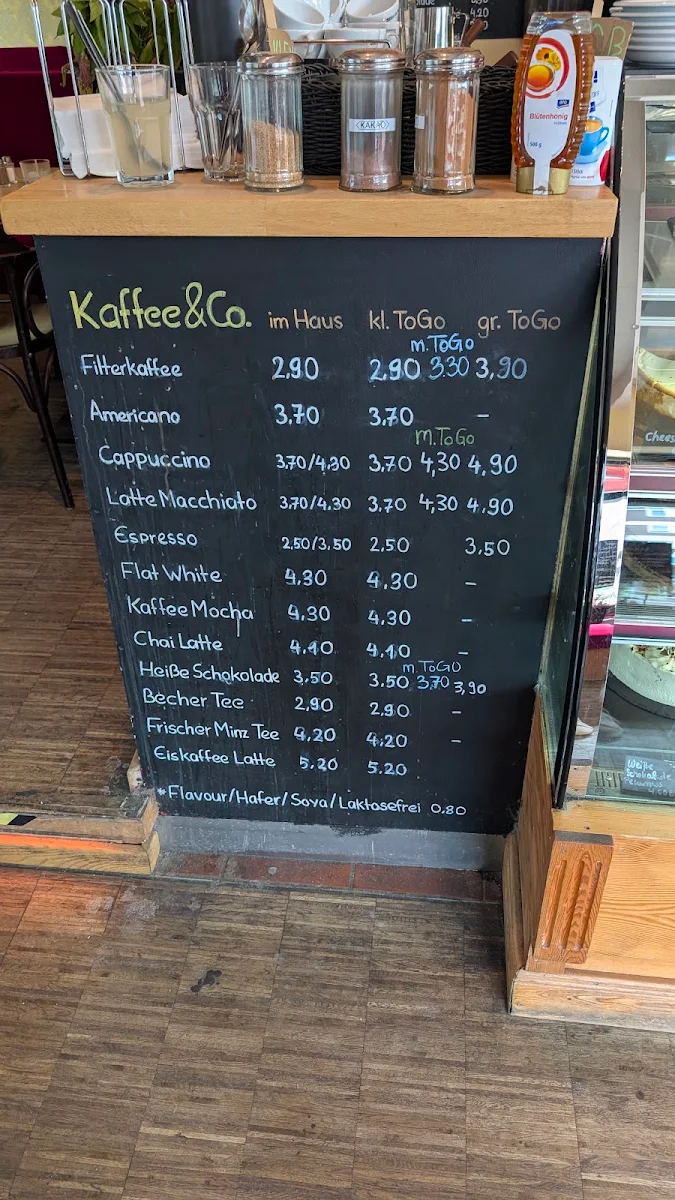 4.20
KAKAO
Blütenhonig
500 g
Kaffee&Co. im Haus kl. ToGo gr. ToGo
m.ToGo
Filterkaffee 2,90 2,90 3.30 3,90
Americano 3,70 3,70 –
m.ToGo
Cappuccino 3,70/4,30 3,70 4,30 4,90
Latte Macchiato 3,70/4.30 3,70 4,30 4.90
Espresso 2,50/3,50 2,50 3,50
Flat White 4.30 4.30 –
Kaffee Mocha 4.30 4.30 –
Chai Latte 4.10 4.10 –
m.ToGO
Heiße Schokolade 3,50 3.50 3.70 3,90
Becher Tee 2,90 2,90 –
Frischer Minz Tee 4,20 4,20 –
Eiskaffee Latte 5.20 5.20
*Flavour/Hafer/Soya/Laktosefrei 0.80
Chees
Weiße